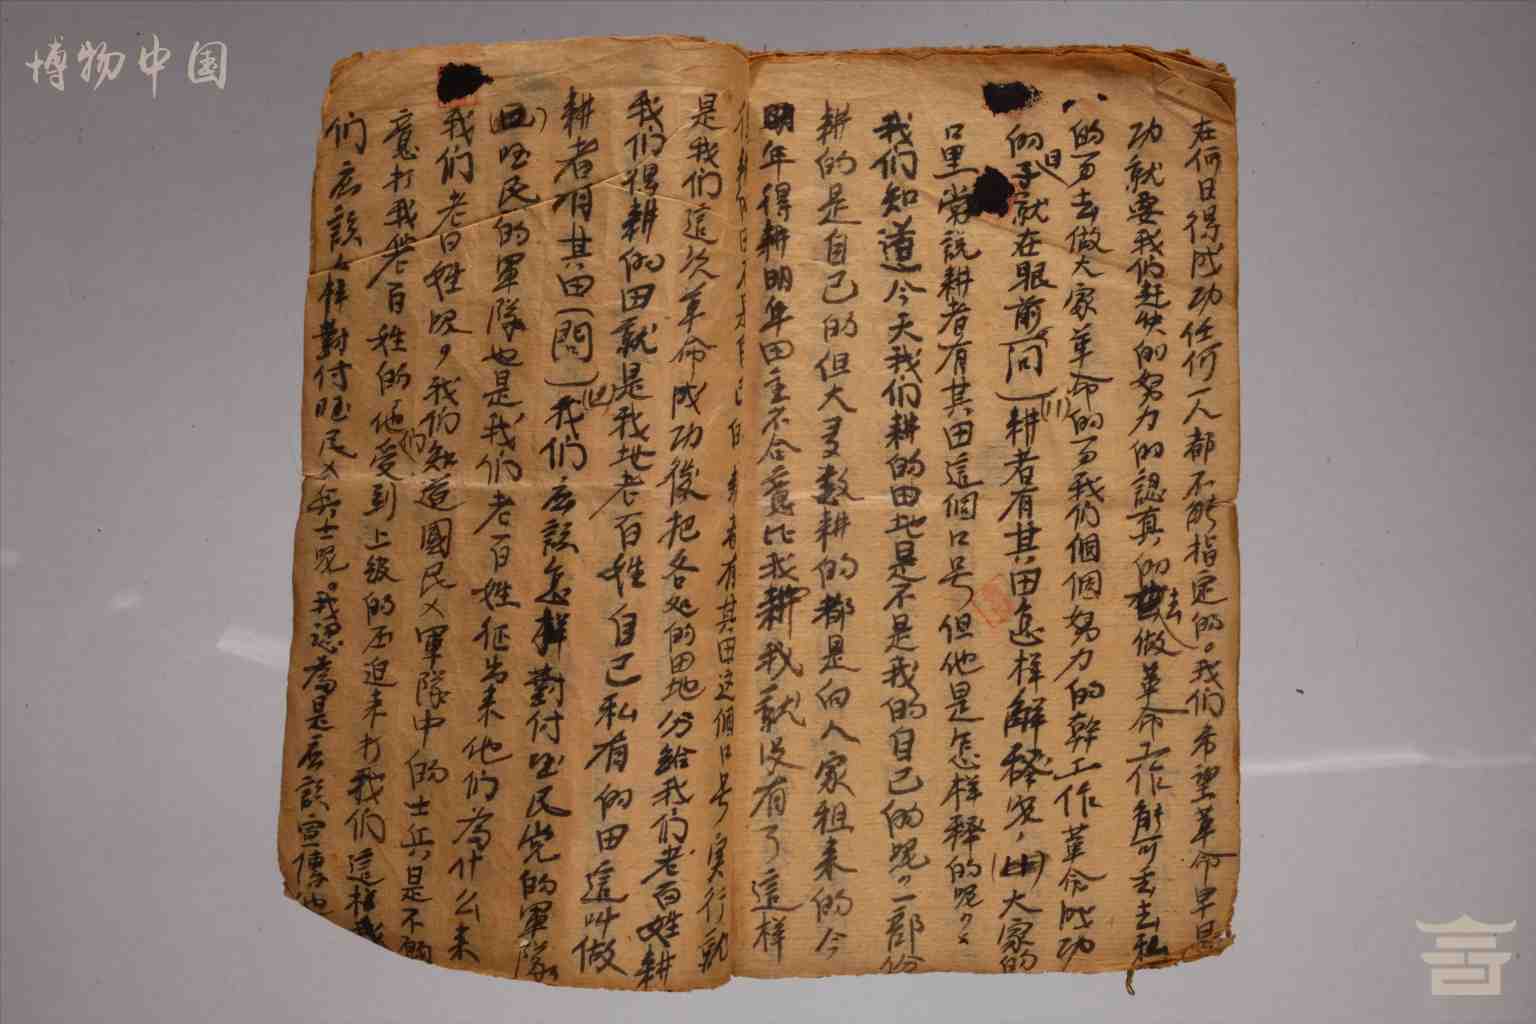 博物中国
在何日得成功任何一人都不能指定的。我们希望革命早日
功就要我们赶快的努力的認真的去做革命工作解可丢去私
的可去做大家革命的可我们個個努力的幹工作革命成功
的日子就在眼前(問)(川)耕者有其田怎样解釋呢,(山)大家的
口里常説耕者有其田這個口号但他是怎样釋的呢?
我们知道今天我们耕的田地是不是我的自己的呢?一部份
耕的是自己的但大多数耕的都是向人家租来的今
明年得耕明年田主不合意比我耕我就没有了這样
耕者有其田这個口号实行就
是我们這次革命成功後把各处的田地分給我们老百姓耕
我们得耕的田就是我地老百姓自己私有的田這叫做
耕者有其田(問)我们应該怎样對付国民党的軍隊
国民的軍隊也是我们老百姓征出来他们為什么来
我们老百姓呢,我们知道國民党軍隊中的士兵是不願
意打我老百姓的他们受到上級的压迫来打我们這样我
们应該怎样對付国民党兵士呢。我認為是应該宣傳他